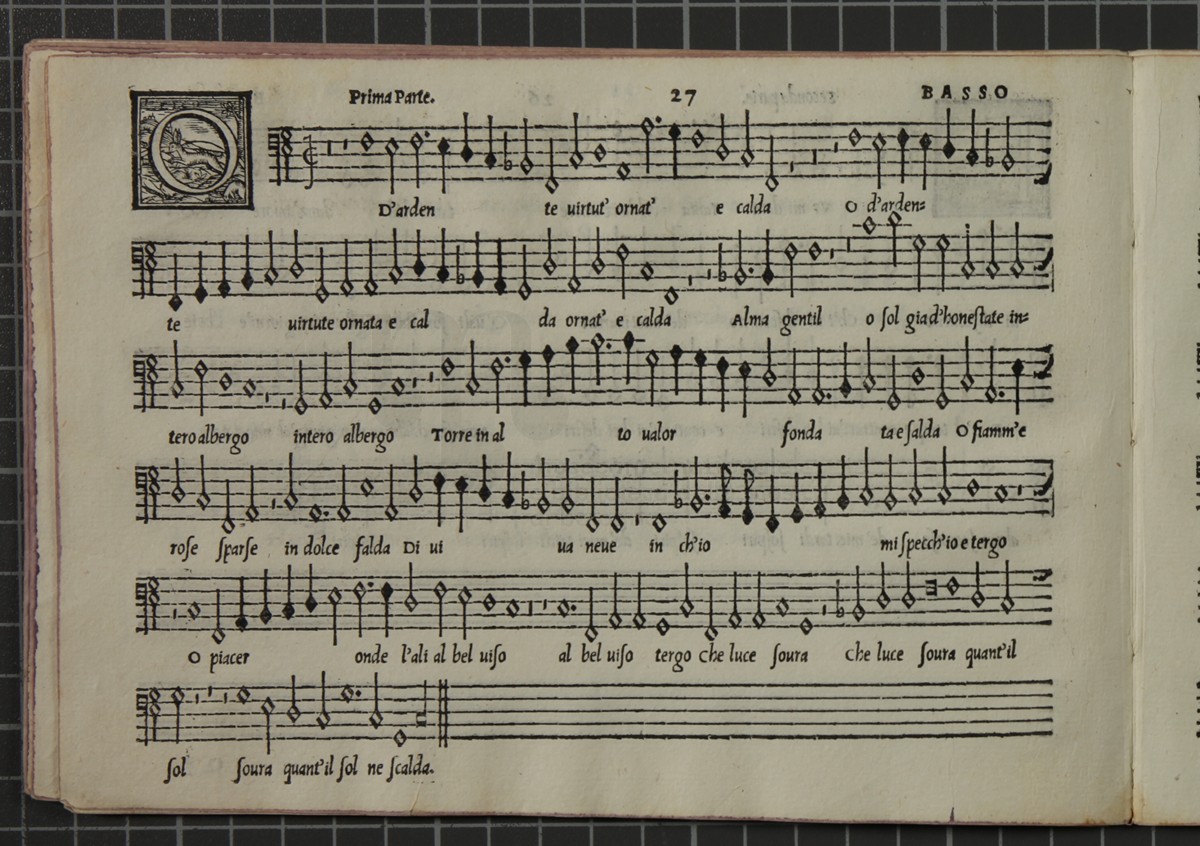 Prima Parte. 27 BASSO
O D'arden te uirtut' ornat' e calda O d'arden=
te uirtute ornata e cal da ornat' e calda Alma gentil o ſol gia d'honeſtate in=
tero albergo intero albergo Torre in al to ualor fonda ta e ſalda O fiamm'e
roſe ſparſe in dolce falda Di ui ua neue in ch'io mi ſpecch'io e tergo
O piacer onde l'ali al bel uiſo al bel uiſo tergo Che luce ſoura Che luce ſoura quant'il
ſol ſoura quant'il ſol ne ſcalda.